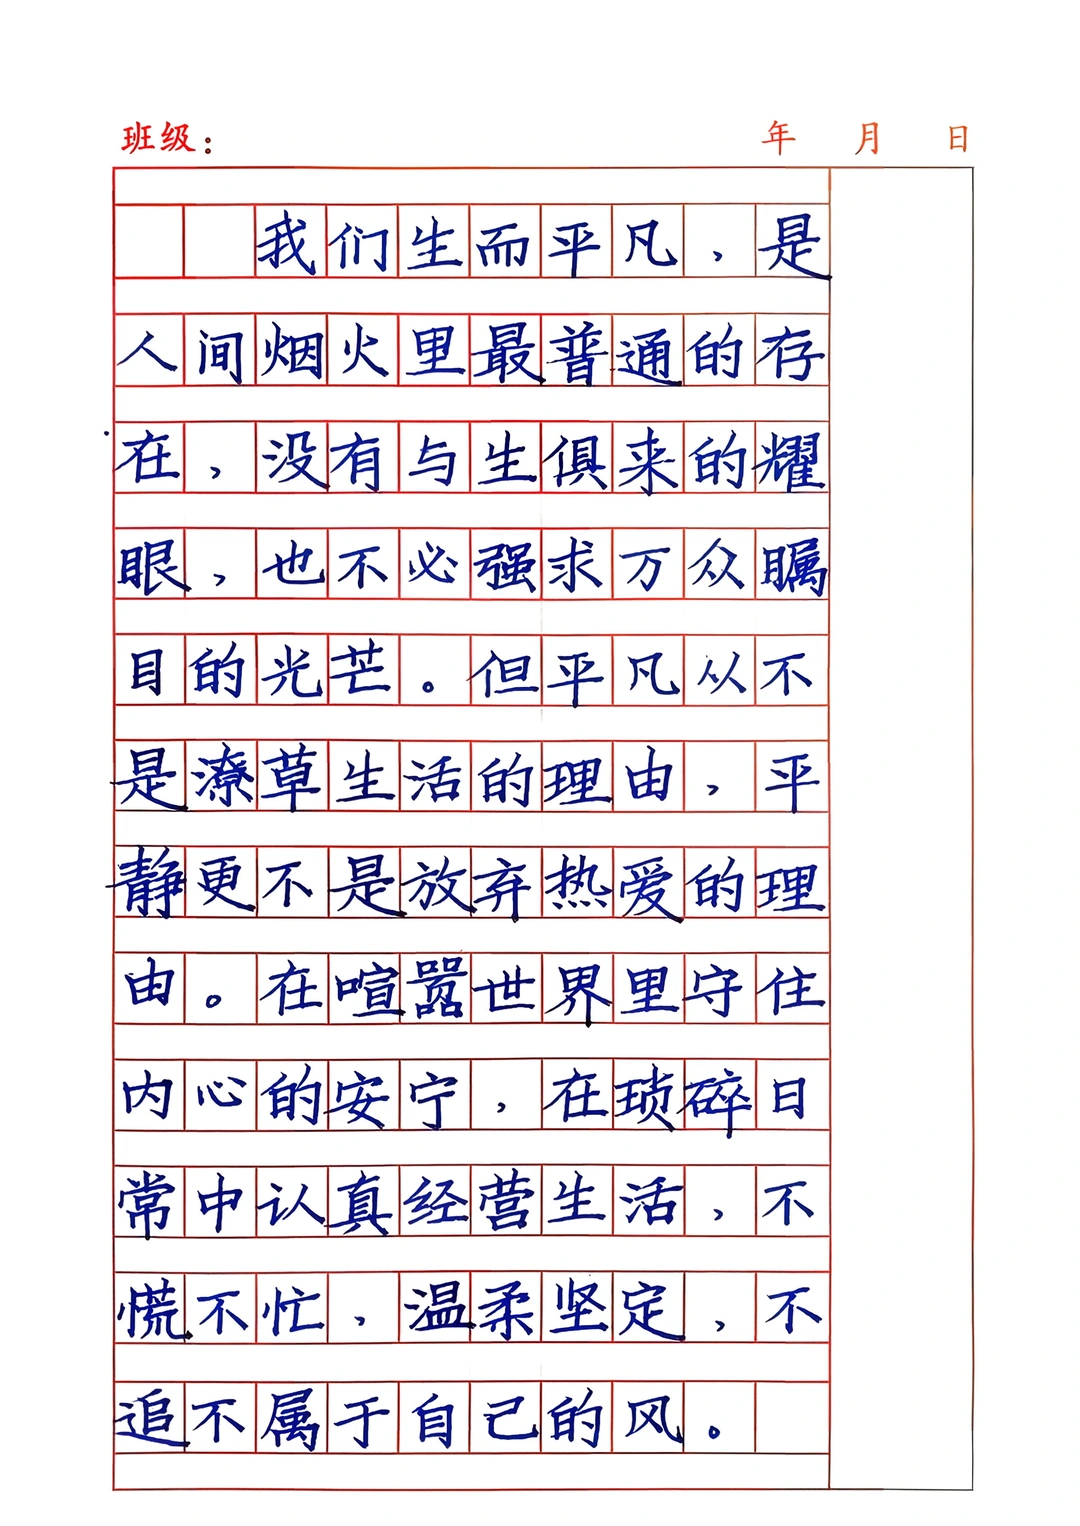 班级： 年 月 日
我们生而平凡，是
人间烟火里最普通的存
在，没有与生俱来的耀
眼，也不必强求万众瞩
目的光芒。但平凡从不
是潦草生活的理由，平
静更不是放弃热爱的理
由。在喧嚣世界里守住
内心的安宁，在琐碎日
常中认真经营生活，不
慌不忙，温柔坚定，不
追不属于自己的风。